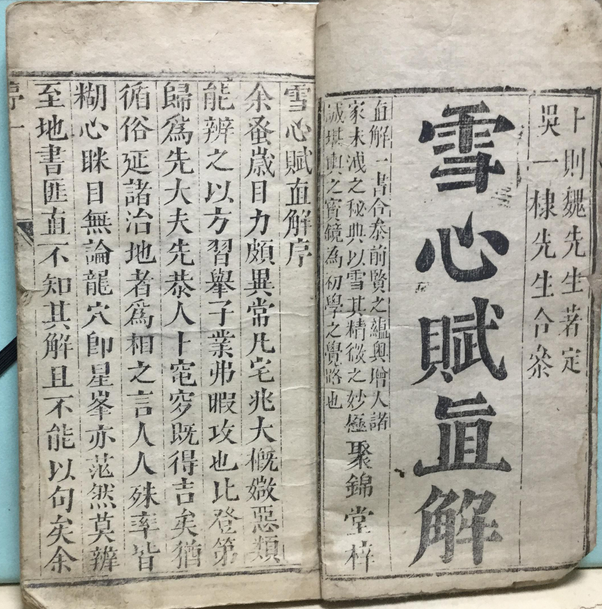 卜則魏先生著定
吳一棣先生合叅
雪心賦直解
直解一書合叅前賢之蘊奧增人諸
家未洩之秘典以雪其精微之妙極
誠堪輿之寶鏡為初學之覺路也
聚錦堂梓
雪心賦直解序
余蚤歳目力頗異常凡宅兆大槪媺惡類
能辨之以方習舉子業弗暇攻也比登第
歸爲先大夫先恭人卜窀穸既得吉矣猶
循俗延諸治地者爲相之言人人殊率皆
糊心眯目無論龍穴卽星峯亦茫然莫辨
至地書匪直不知其解且不能以句矣余
序一